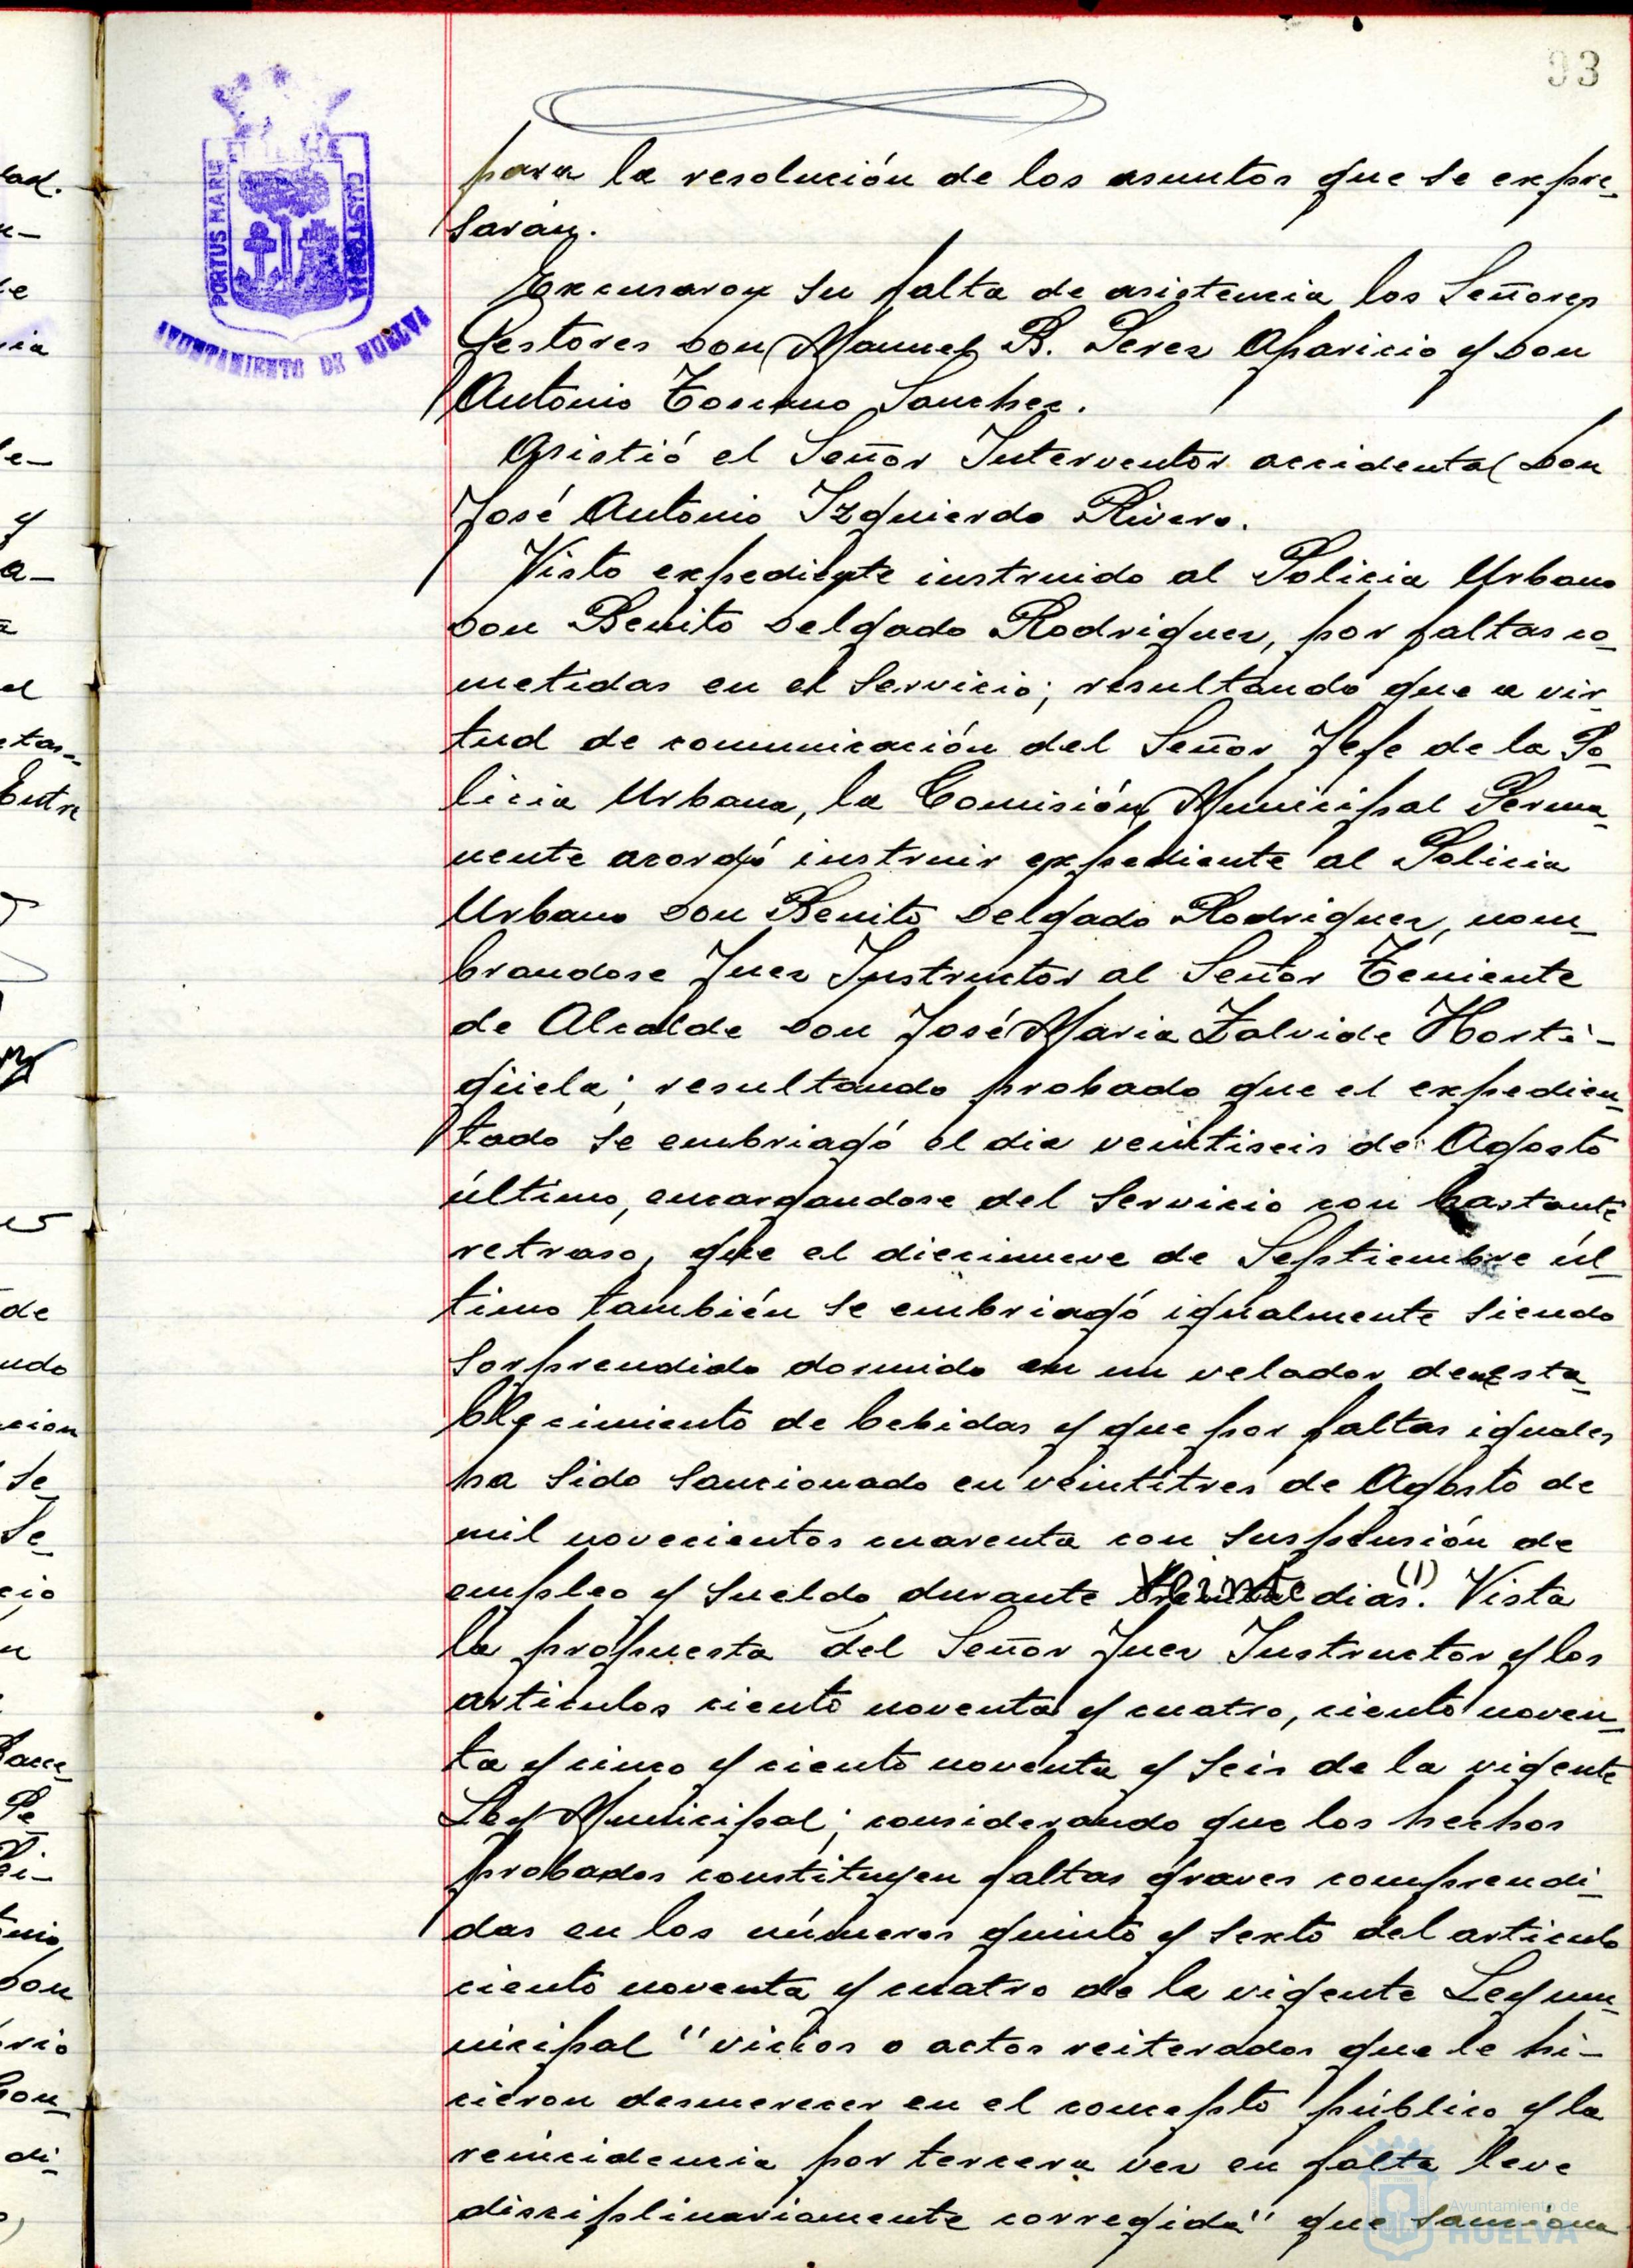 93
PORTUS MARIS
CUSTODIA
AYUNTAMIENTO DE HUELVA
para la resolución de los asuntos que se expre-
sarán.
Excusaron su falta de asistencia los Señores
Gestores Don Manuel B. Perez Aparicio y Don
Antonio Toscano Sanchez.
Asistió el Señor Interventor accidental Don
José Antonio Izquierdo Rivero.
Visto expediente instruido al Policia Urbano
Don Benito Delgado Rodriguez, por faltas co-
metidas en el servicio; resultando que a vir-
tud de comunicación del Señor Jefe de la Po-
licia Urbana, la Comisión Municipal Perma-
nente acordó instruir expediente al Policia
Urbano Don Benito Delgado Rodriguez, nom-
brandose Juez Instructor al Señor Teniente
de Alcalde Don José Maria Zalvide Horti-
güela; resultando probado que el expedien-
tado se embriagó el dia veintiseis de Agosto
último, encargandose del servicio con bastante
retraso, que el diecinueve de Septiembre úl-
timo también se embriagó igualmente siendo
sorprendido dormido en un velador de esta-
blecimiento de bebidas y que por faltas iguales
ha sido sancionado en veintitres de Agosto de
mil novecientos cuarenta con suspensión de
empleo y sueldo durante veinte dias.(1) Vista
la propuesta del Señor Juez Instructor y los
articulos ciento noventa y cuatro, ciento noven-
ta y cinco y ciento noventa y seis de la vigente
Ley Municipal; considerando que los hechos
probados constituyen faltas graves comprendi-
das en los números quinto y sexto del articulo
ciento noventa y cuatro de la vigente Ley mu-
nicipal "vicios o actos reiterados que le hi-
cieron desmerecer en el concepto público y la
reincidencia por tercera vez en falta leve
disciplinariamente corregida" que sanciona
Ayuntamiento de
HUELVA